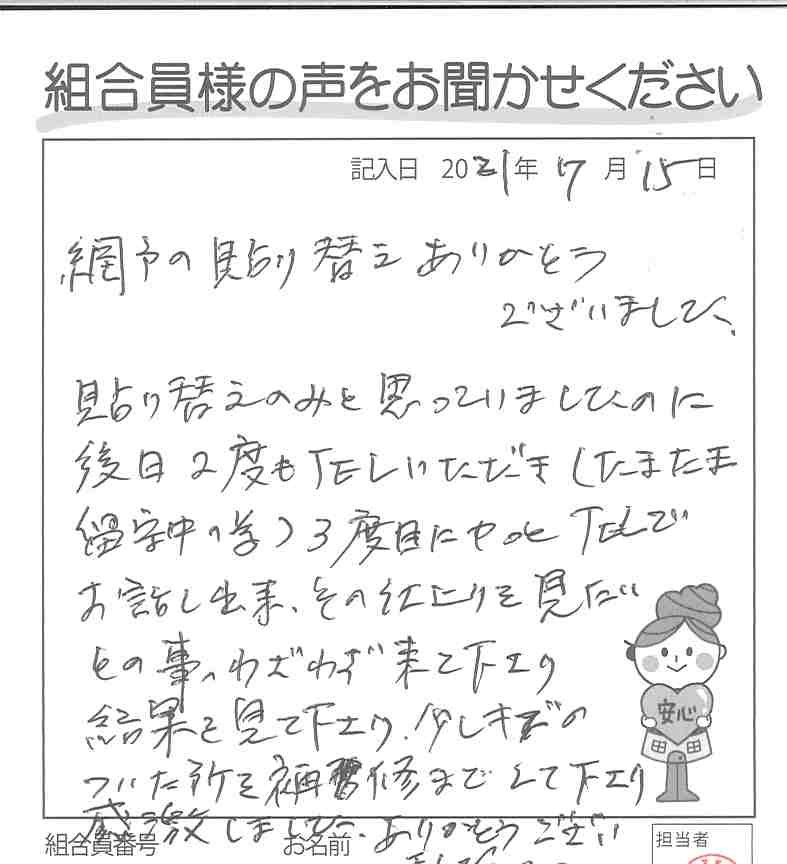 組合員様の声をお聞かせください
記入日 2021年 7月 15日
網戸の貼り替え ありがとう
ございました。
貼り替えのみと思っていましたのに
後日 2度も TELいただき (たまたま
留守中の為) 3度目にやっと TELで
お話し出来、その仕上りを見たい
との事、わざわざ来て下さり
結果を見て下さり、少しキズの
ついた所を補修までして下さり
感激しました。ありがとうござい
安心
組合員番号
お名前
担当者